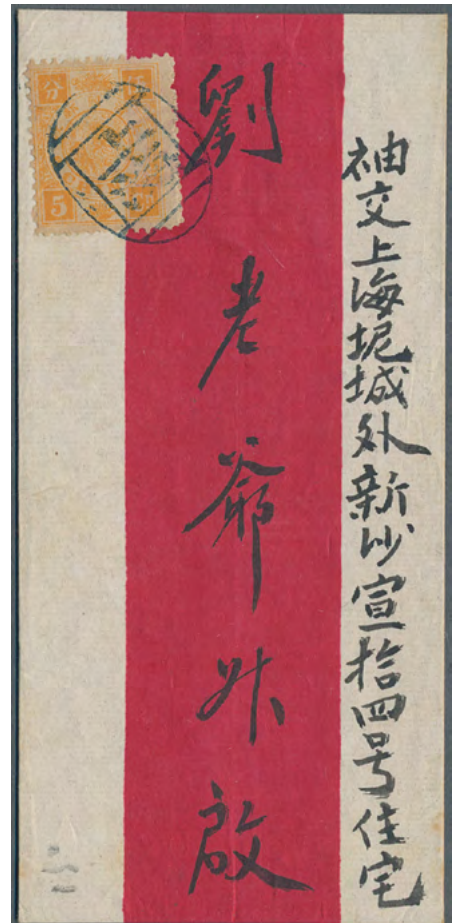 袖交上海坭城外新沙宣拾四号住宅
劉老爺升啟
分 伍
5